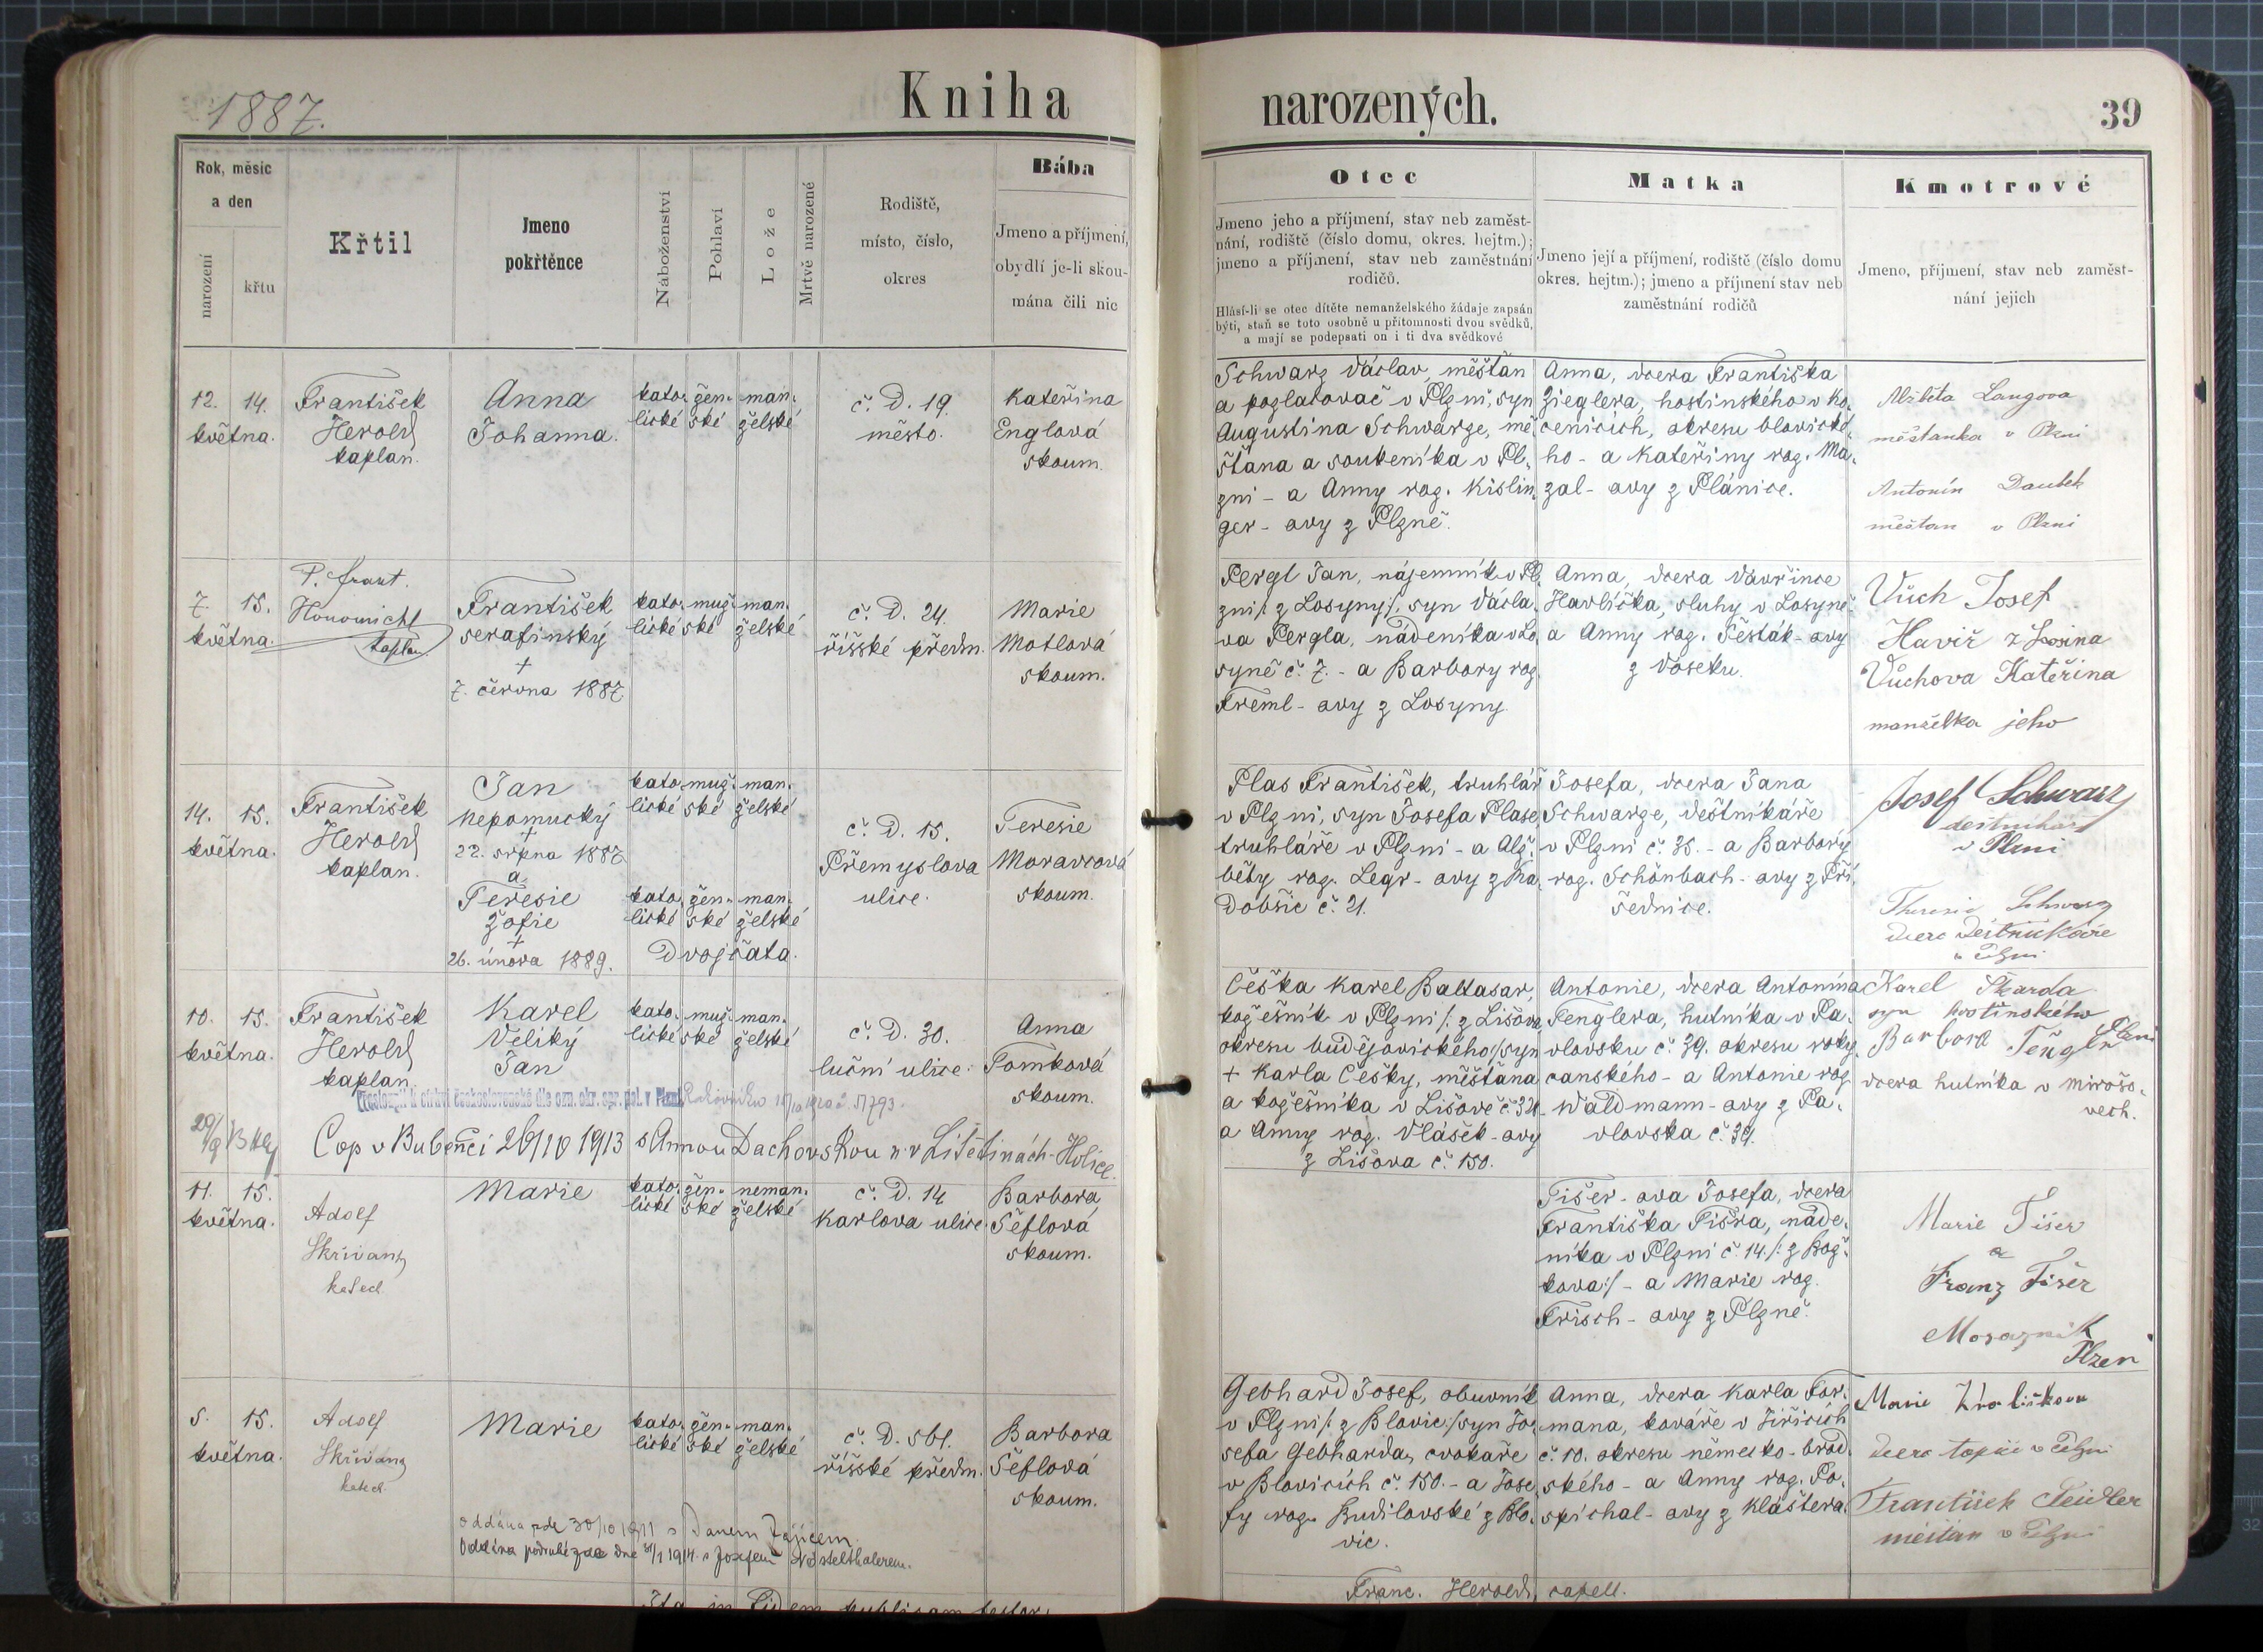 1887.
Kniha
narozených.
39
Rok, měsíc
a den
narození
křtu
Křtil
Jmeno
pokřtěnce
Náboženství
Pohlaví
Lože
Mrtvě narozené
Rodiště,
místo, číslo,
okres
Bába
Jmeno a příjmení,
obydlí je-li skou-
mána čili nic
Otec
Jmeno jeho a příjmení, stav neb zaměst-
nání, rodiště (číslo domu, okres. hejtm.);
jmeno a příjmení, stav neb zaměstnání
rodičů.
Hlásí-li se otec dítěte nemanželského žádaje zapsán
býti, staň se toto osobně u přítomnosti dvou svědků,
a mají se podepsati on i ti dva svědkové
Matka
Jmeno její a příjmení, rodiště (číslo domu
okres. hejtm.); jmeno a příjmení stav neb
zaměstnání rodičů
Kmotrové
Jmeno, příjmení, stav neb zaměst-
nání jejich
12. 14.
května.
František
Herold
kaplan.
Anna
Johanna.
kato- žen- man-
lické ské želské
č. D. 19.
město.
Kateřina
Englová
skoum.
Schwarz Václav, měšťan
a pozlatovač v Plzni, syn
Augustina Schwarze, mě-
šťana a soukeníka v Pl-
zni - a Anny roz. Kislin-
ger - ovy z Plzně.
Anna, dcera Františka
Zieglera, hostinského v Ko-
cenicích, okresu blovické-
ho - a Kateřiny roz. Ma-
zal - ovy z Plánice.
Alžběta Langova
měšťanka v Plzni
Antonín Daubek
měšťan v Plzni
7. 15.
května.
P. frant.
Honomichl
kaplan
František
serafinský
+
7. června 1887.
kato- muž- man-
lické ské želské
č. D. 24.
říšské předm.
Marie
Motlová
skoum.
Pergl Jan, nájemník v Pl-
zni /: z Losyny:/, syn Václa-
va Pergla, nádeníka v Lo-
syné č. 7. - a Barbory roz.
Treml - ovy z Losyny.
Anna, dcera Vavřince
Havlíčka, sluhy v Losyné
a Anny roz. Šesták - ovy
z Voseku.
Vůch Josef
Havíř z Losina
Vůchova Kateřina
manželka jeho
14. 15.
května.
František
Herold
kaplan.
Jan
Nepomucký
+
22. srpna 1887
a
Teresie
Žofie
+
26. února 1889.
kato- muž- man-
lické ské želské
kato- žen- man-
lické ské želské
Dvojčata.
č. D. 15.
Přemyslova
ulice.
Teresie
Moravcová
skoum.
Plas František, truhlář
v Plzni, syn Josefa Plase
truhláře v Plzni - a Alž-
běty roz. Legr - ovy z Ra-
dobšic č. 21.
Josefa, dcera Jana
Schwarze, deštníkáře
v Plzni č. 35. - a Barbory
roz. Schönbach - ovy z Pří-
šednice.
Josef Schwarz
deštníkář
v Plzni
Theresie Schwarz
dcera deštníkáře
v Plzni
10. 15.
května.
František
Herold
kaplan.
Karel
Veliký
Jan
kato- muž- man-
lické ské želské
č. D. 30.
luční ulice.
Anna
Tomková
skoum.
Přestoupil k církvi československé dle ozn. okr. spr. pol. v Plzni
Cop v Bubenči 26/10 1913 s Annou Dachovskou n. v Litětinách-Holice.
Češka Karel Baltasar,
kožešník v Plzni /: z Lišova,
okresu budějovického:/ syn
+ Karla Češky, měšťana
a kožešníka v Lišově č. 321 -
a Anny roz. Vlášek - ovy
z Lišova č. 150.
Antonie, dcera Antonína
Fenglera, hutníka v Pa-
vlovsku č. 39. okresu roky-
canského - a Antonie roz.
Waldmann - ovy z Pa-
vlovska č. 39.
Karel Škarda
syn hostinského
Plzni
Barbora Fengler
dcera hutníka v Mirošo-
vech.
11. 15.
května.
Adolf
Skřivan
katech.
Marie
kato- žen- neman-
lické ské želské
č. D. 14
Karlova ulice.
Barbora
Šeflová
skoum.
Tišer - ova Josefa, dcera
Františka Tišra, náde-
níka v Plzni č. 14. /: z Bož-
kova:/ - a Marie roz.
Frisch - ovy z Plzně.
Marie Tišer
a
Franz Tišer
Mosaznik
Plzen
5. 15.
května.
Adolf
Skřivan
katech.
Marie
kato- žen- man-
lické ské želské
č. D. 561.
říšské předm.
Barbora
Šeflová
skoum.
oddána poli 30/10 1911 s Janem Zajícem.
Oddána podruhé zde dne 31/1 1914. s Josefem Nesselthalerem.
Gebhard Josef, obuvník
v Plzni /: z Blovic:/ syn Jo-
sefa Gebharda, cvokaře
v Blovicích č. 150. - a Jose-
fy roz. Budilovské z Blo-
vic.
Anna, dcera Karla For-
mana, kováře v Jiřicích
č. 10. okresu německo-brod-
ského - a Anny roz. Po-
spíchal - ovy z Kláštera.
Marie Králíčkova
dcera topiče v Plzni
František Seidler
měšťan v Plzni
Ita in fidem publicam testor:
Franc. Herold, capell.